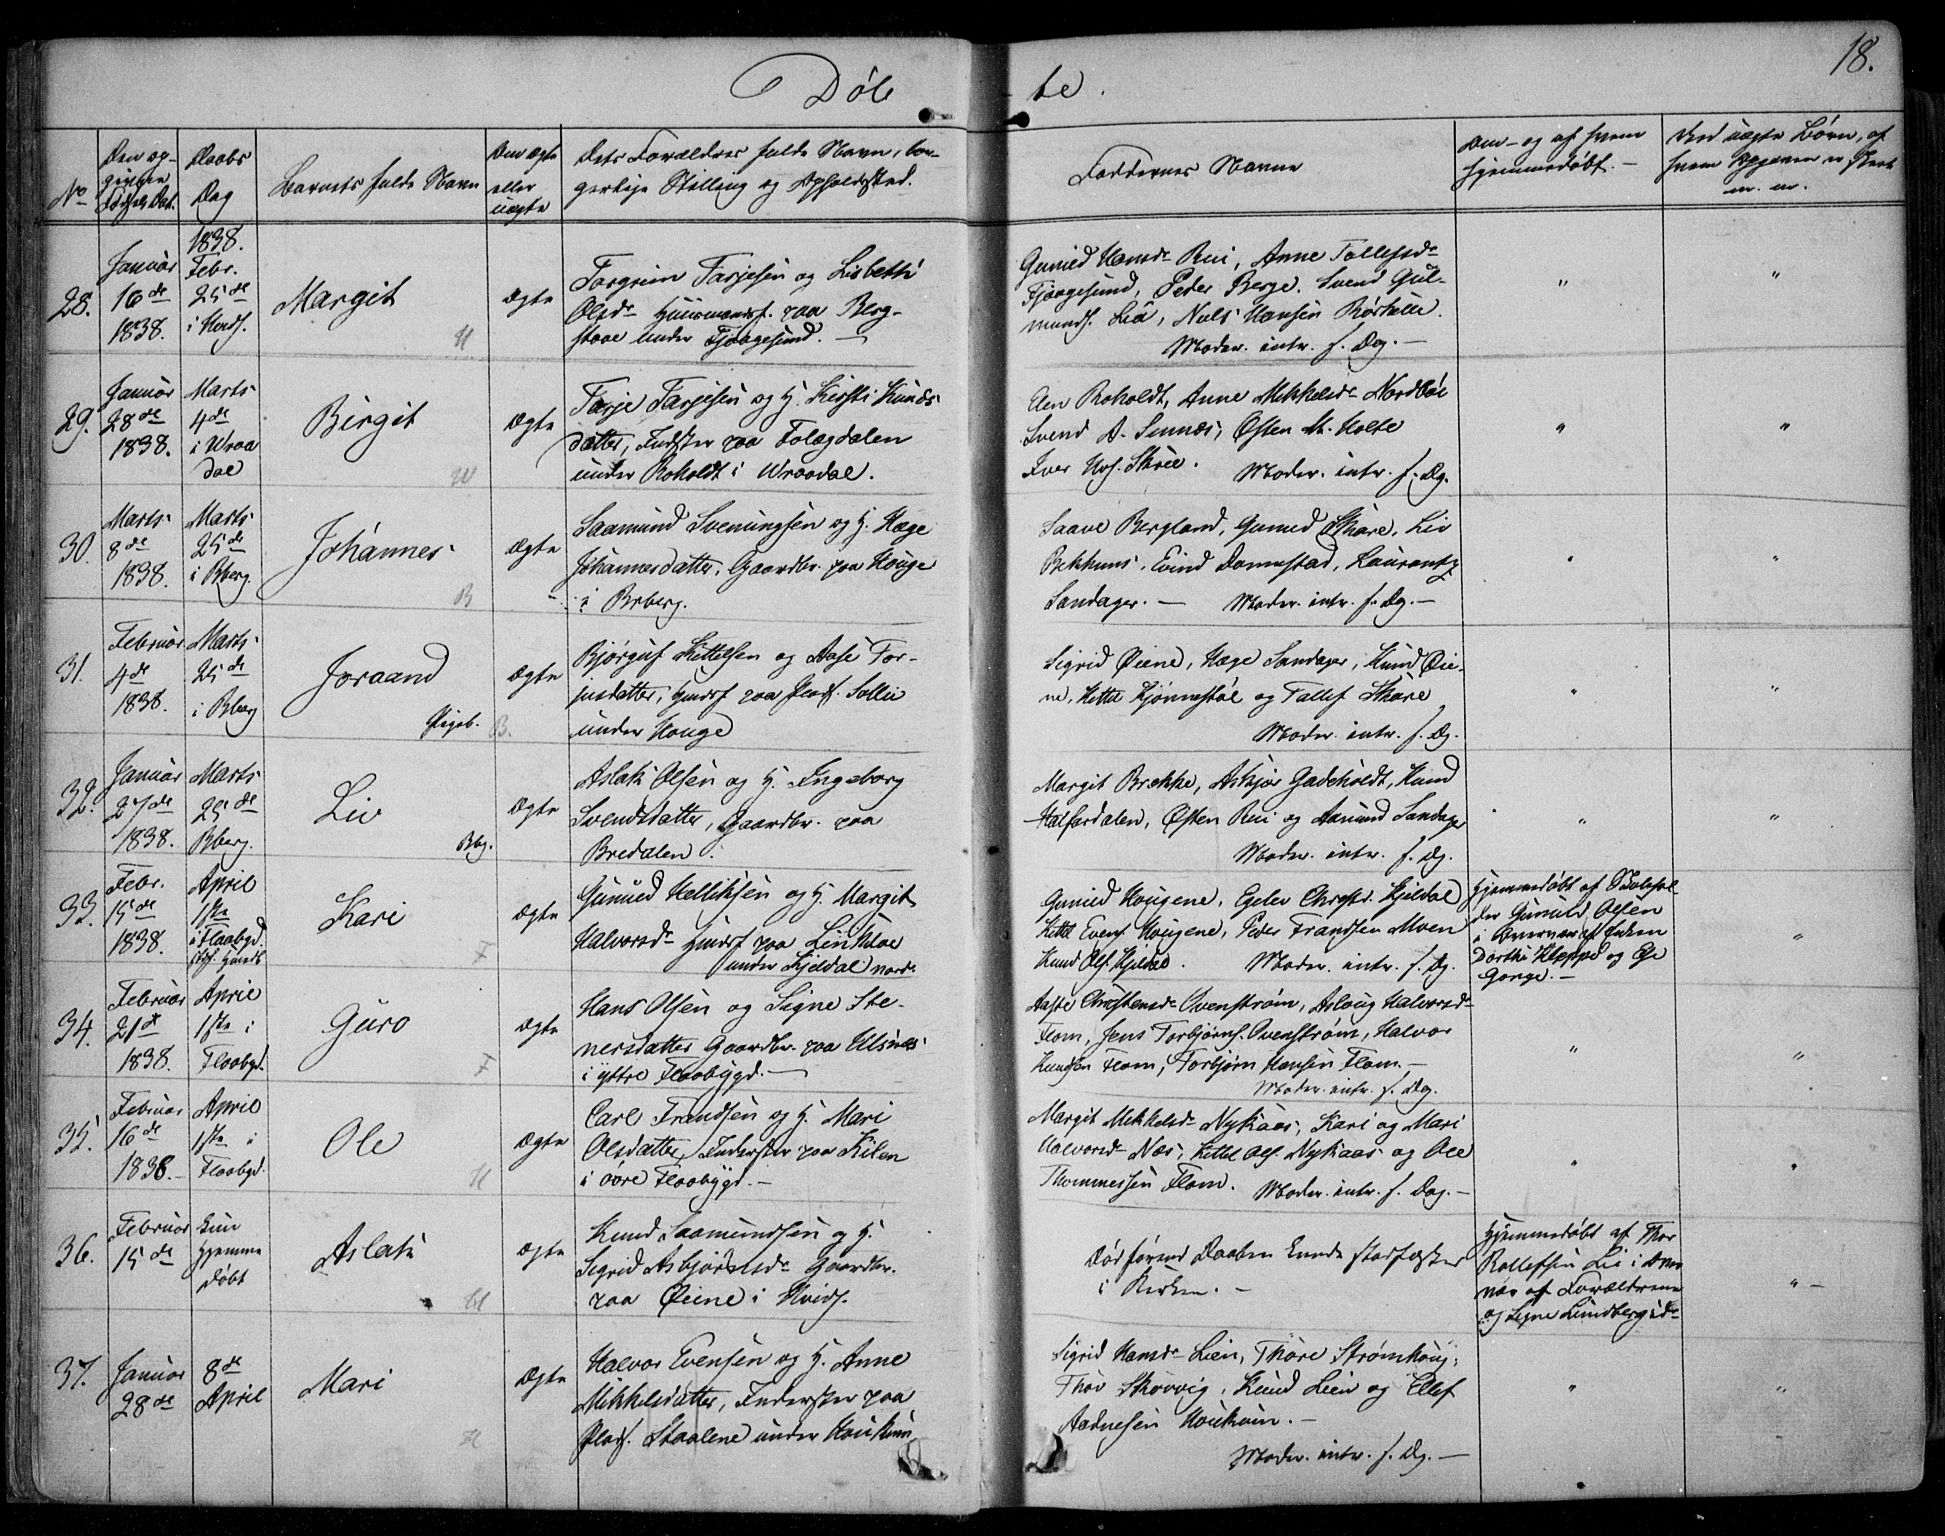 Døb
te.
18.
No
Den op-
givne
Fødsels Dat.
Daabs
Dag
Barnets fulde Navn
Om ægte
eller
uægte
Dets Forældres fulde Navn, bor-
gerlige Stilling og Opholdsted.
Faddernes Navne
Om- og af hvem
hjemmedøbt.-
Ved uægte Børn, af
hvem Opgaven er skeet
m. m.
28.
Januar
16de
1838.
1838.
Febr.
25de
i Hvids.
Margit
H
Ægte
Torgrim Tarjesen og Lisbeth
Olsdr Huusmandsf. paa Berg-
staae under Fjaagesund.
Gunild Hansdr Rui, Anne Tollefsdr
Fjaagesund, Peder Berge, Svend Gul-
munds. Lia, Niels Hansen Rørhelle.
Moder. intr. s. Dg.-
"
"
29.
Januar
28de
1838.
Marts
4de
i Wraa
dal
Birgit
W
Ægte
Tarje Tarjesen og H. Kirsti Knuds
datter, Inderster paa Folægdalen
under Roholdt i Wraadal.
Aen Roholdt, Anne Mikkelsdr Nordbøe
Svend A. Sinnes, Østen M. Holte
Iver Hrs. Skree. Moder. intr. s. Dg.
"
"
30.
Marts
8de
1838.
Marts
25de
i Bberg.
Johannes
B
Ægte
Saamund Sveinungsen og H. Hæge
Johannesdatter, Gaardbr. paa Houge
i Brberg.
Saave Bergland, Gunild Skare, Liv
Bekhuus, Eivind Dammestad, Laurantz
Sandager.- Moder. intr. s. Dg.-
"
"
31.
Februar
4de
1838.
Marts
25de
i Bberg
Joraand
Pigeb. B.
Ægte
Bjørguf Kittelsen og Aase Tor-
jusdatter, Hmdsf paa Plads. Sollie
under Houge
Sigrid Øiene, Hæge Sandager, Knud Øie-
ne, Kittel Hjønnestøl og Tallef Skare
Moder. intr. s. Dg.
"
"
32.
Januar
27de
1838.
Marts
25de
Bberg.
Liv
Bbg.
Ægte
Aslak Olsen og H. Ingeborg
Svendsdatter, Gaardbr. paa
Bredalen.
Margit Brække, Askjør Gadeholdt, Knud
Halfardalen, Østen Rui og Aanund Sandager
Moder. intr. s. Dg.
"
"
33.
Febr.
15de
1838.
April
1ste
i Flaabgd.
Kari
F
Ægte
Gunuld Helliksen og H. Margit
Halvorsdr Hmdsf paa Linkaae
under Kjeldal nordr.
Gunild Hougene, Egelev Christs. Kjeldal
Kittel Evens. Hougene, Peder Frandsen Moen
Knud Ols. Kjeldal. Moder. intr. s. Dg.
Hjemmedøbt af
Gunuld Olsen
i Overvær af Enken
Dorthi Kleppe og
"
34.
Februar
21de
1838.
April
1ste i
Flaabgd.
Guro
F
Ægte
Hans Olsen og Signe Ste-
nersdatter Gaardbr. paa Ullsnæs
i yttre Flaabygd.-
Aaste Christensdr Qvenstrøm, Aslaug Halvorsdr
Flom, Jens Torbjørns. Qvenstrøm, Halvor
Knudsen Flom, Torbjørn Hansen Flom.-
Moder. intr. s. Dg.
"
"
35.
Februar
16de
1838.-
April
1ste i
Flaabgd.
Ole
H
Ægte
Carl Frandsen og H. Mari
Olsdatter, Inderster paa Kilen
i øvre Flaabygd.-
Margit Mikkelsdr Nykaas, Kari og Mari
Halvorsdr Næs, Kittel Ols. Nykaas og Ole
Thommessen Flom. Moder. intr. s. Dag.-
"
"
36.
Februar
15de
Kun
Hjemme
døbt
Aslak
H
Ægte
Knud Saamundsen og H.
Sigrid Asbjørnsdr Gaardbr.
paa Øiene i Hvids.
Død førend Daaben kunde stadfæstes
i Kirken.-
Hjemmedøbt af Thor
Rollefsen Lie i Over-
vær af Forældrene
og Signe Lundbergsdr
"
37.
Januar
28de
8de
April
Mari
H
Ægte
Halvor Evensen og H. Anne
Mikkelsdatter, Inderster paa
Plads. Staalene under Houkum
Sigrid Hansdr Lien, Thore Strømhoug,
Thov Skorvig, Knud Lien og Ellef
Aadnesen Houkom.-
Moder. intr. s. Dg.-
"
"